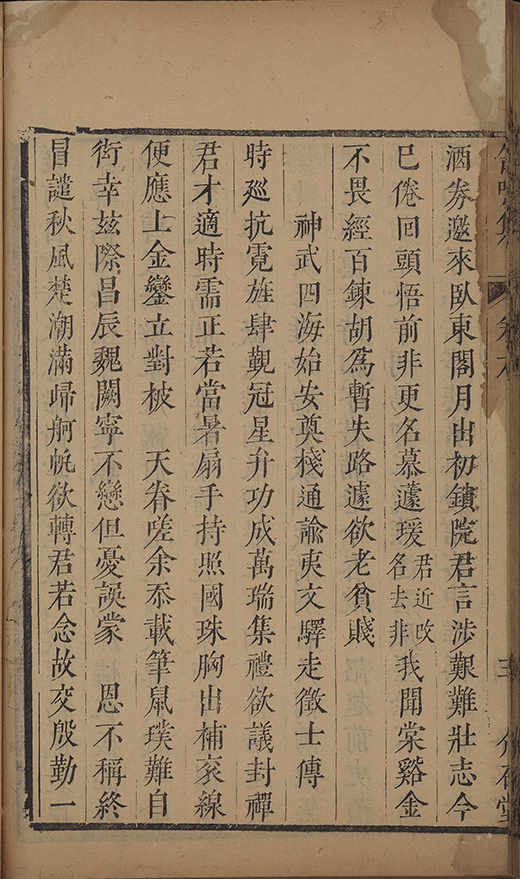 酒劵邀來臥東閣月出初鎖院君言涉艱難壯志今
巳倦回頭悟前非更名慕蘧瑗君近改名去非我聞棠谿金
不畏經百鍊胡爲暫失路遽欲老貧賤
神武四海始安奠棧通諭夷文驛走徵士傳
時廵抗霓旌肆覲冠星弁功成萬瑞集禮欲議封禪
君才適時需正若當暑扇手持照國珠胸出補衮線
便應上金鑾立對被　天眷嗟余忝載筆鼠璞難自
衒幸兹際昌辰魏闕寧不戀但憂誤蒙　恩不稱終
冒譴秋風楚潮滿歸舸帆欲轉君若念故交殷勤一